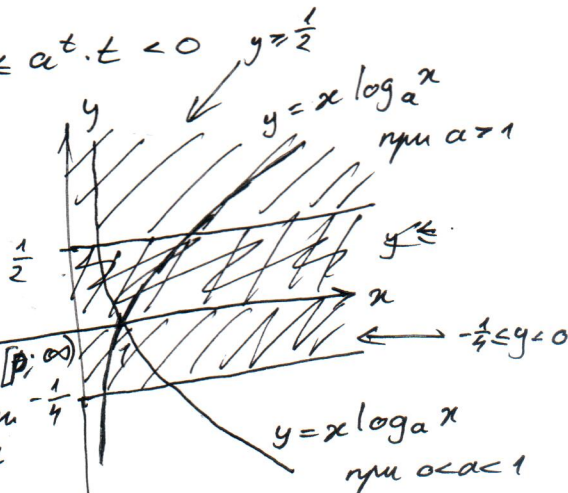 ≤ a^t · t < 0
y ≥ 1/2
y = x log_a x
при a > 1
y
1/2
y ≤
x
1
[0; ∞)
-1/4 ≤ y < 0
-1/4
y = x log_a x
при 0 < a < 1